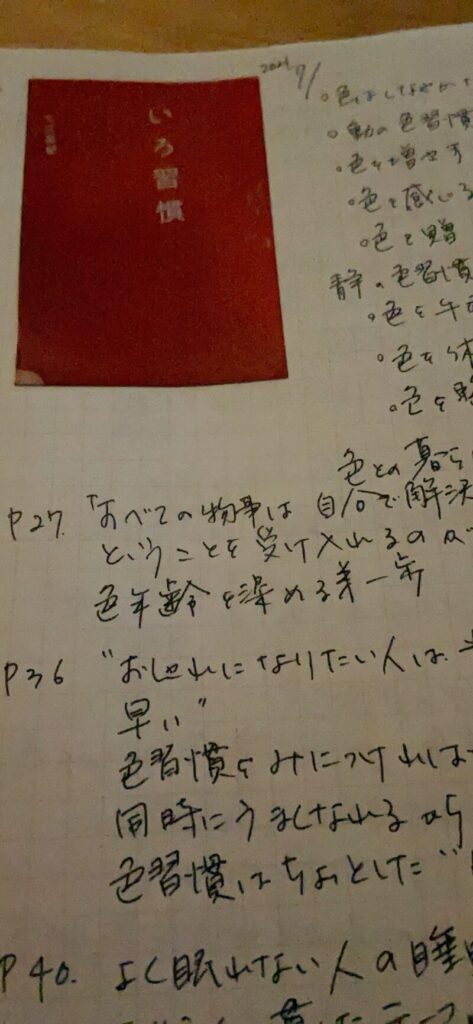 いろ習慣
2021 7/
・動の色習慣
・色を増やす
・色を感じる
・色を贈
静の色習慣
・色を
・色を休
・色を
色との暮らし
P27. 「すべての物事は自分で解決
ということを受け入れるのが
色年齢を染める第一歩
P36 "おしゃれになりたい人は
早い"
色習慣をみにつければ
同時にうまくなれるから
色習慣はちょっとした"
P40. よく眠れない人の睡眠